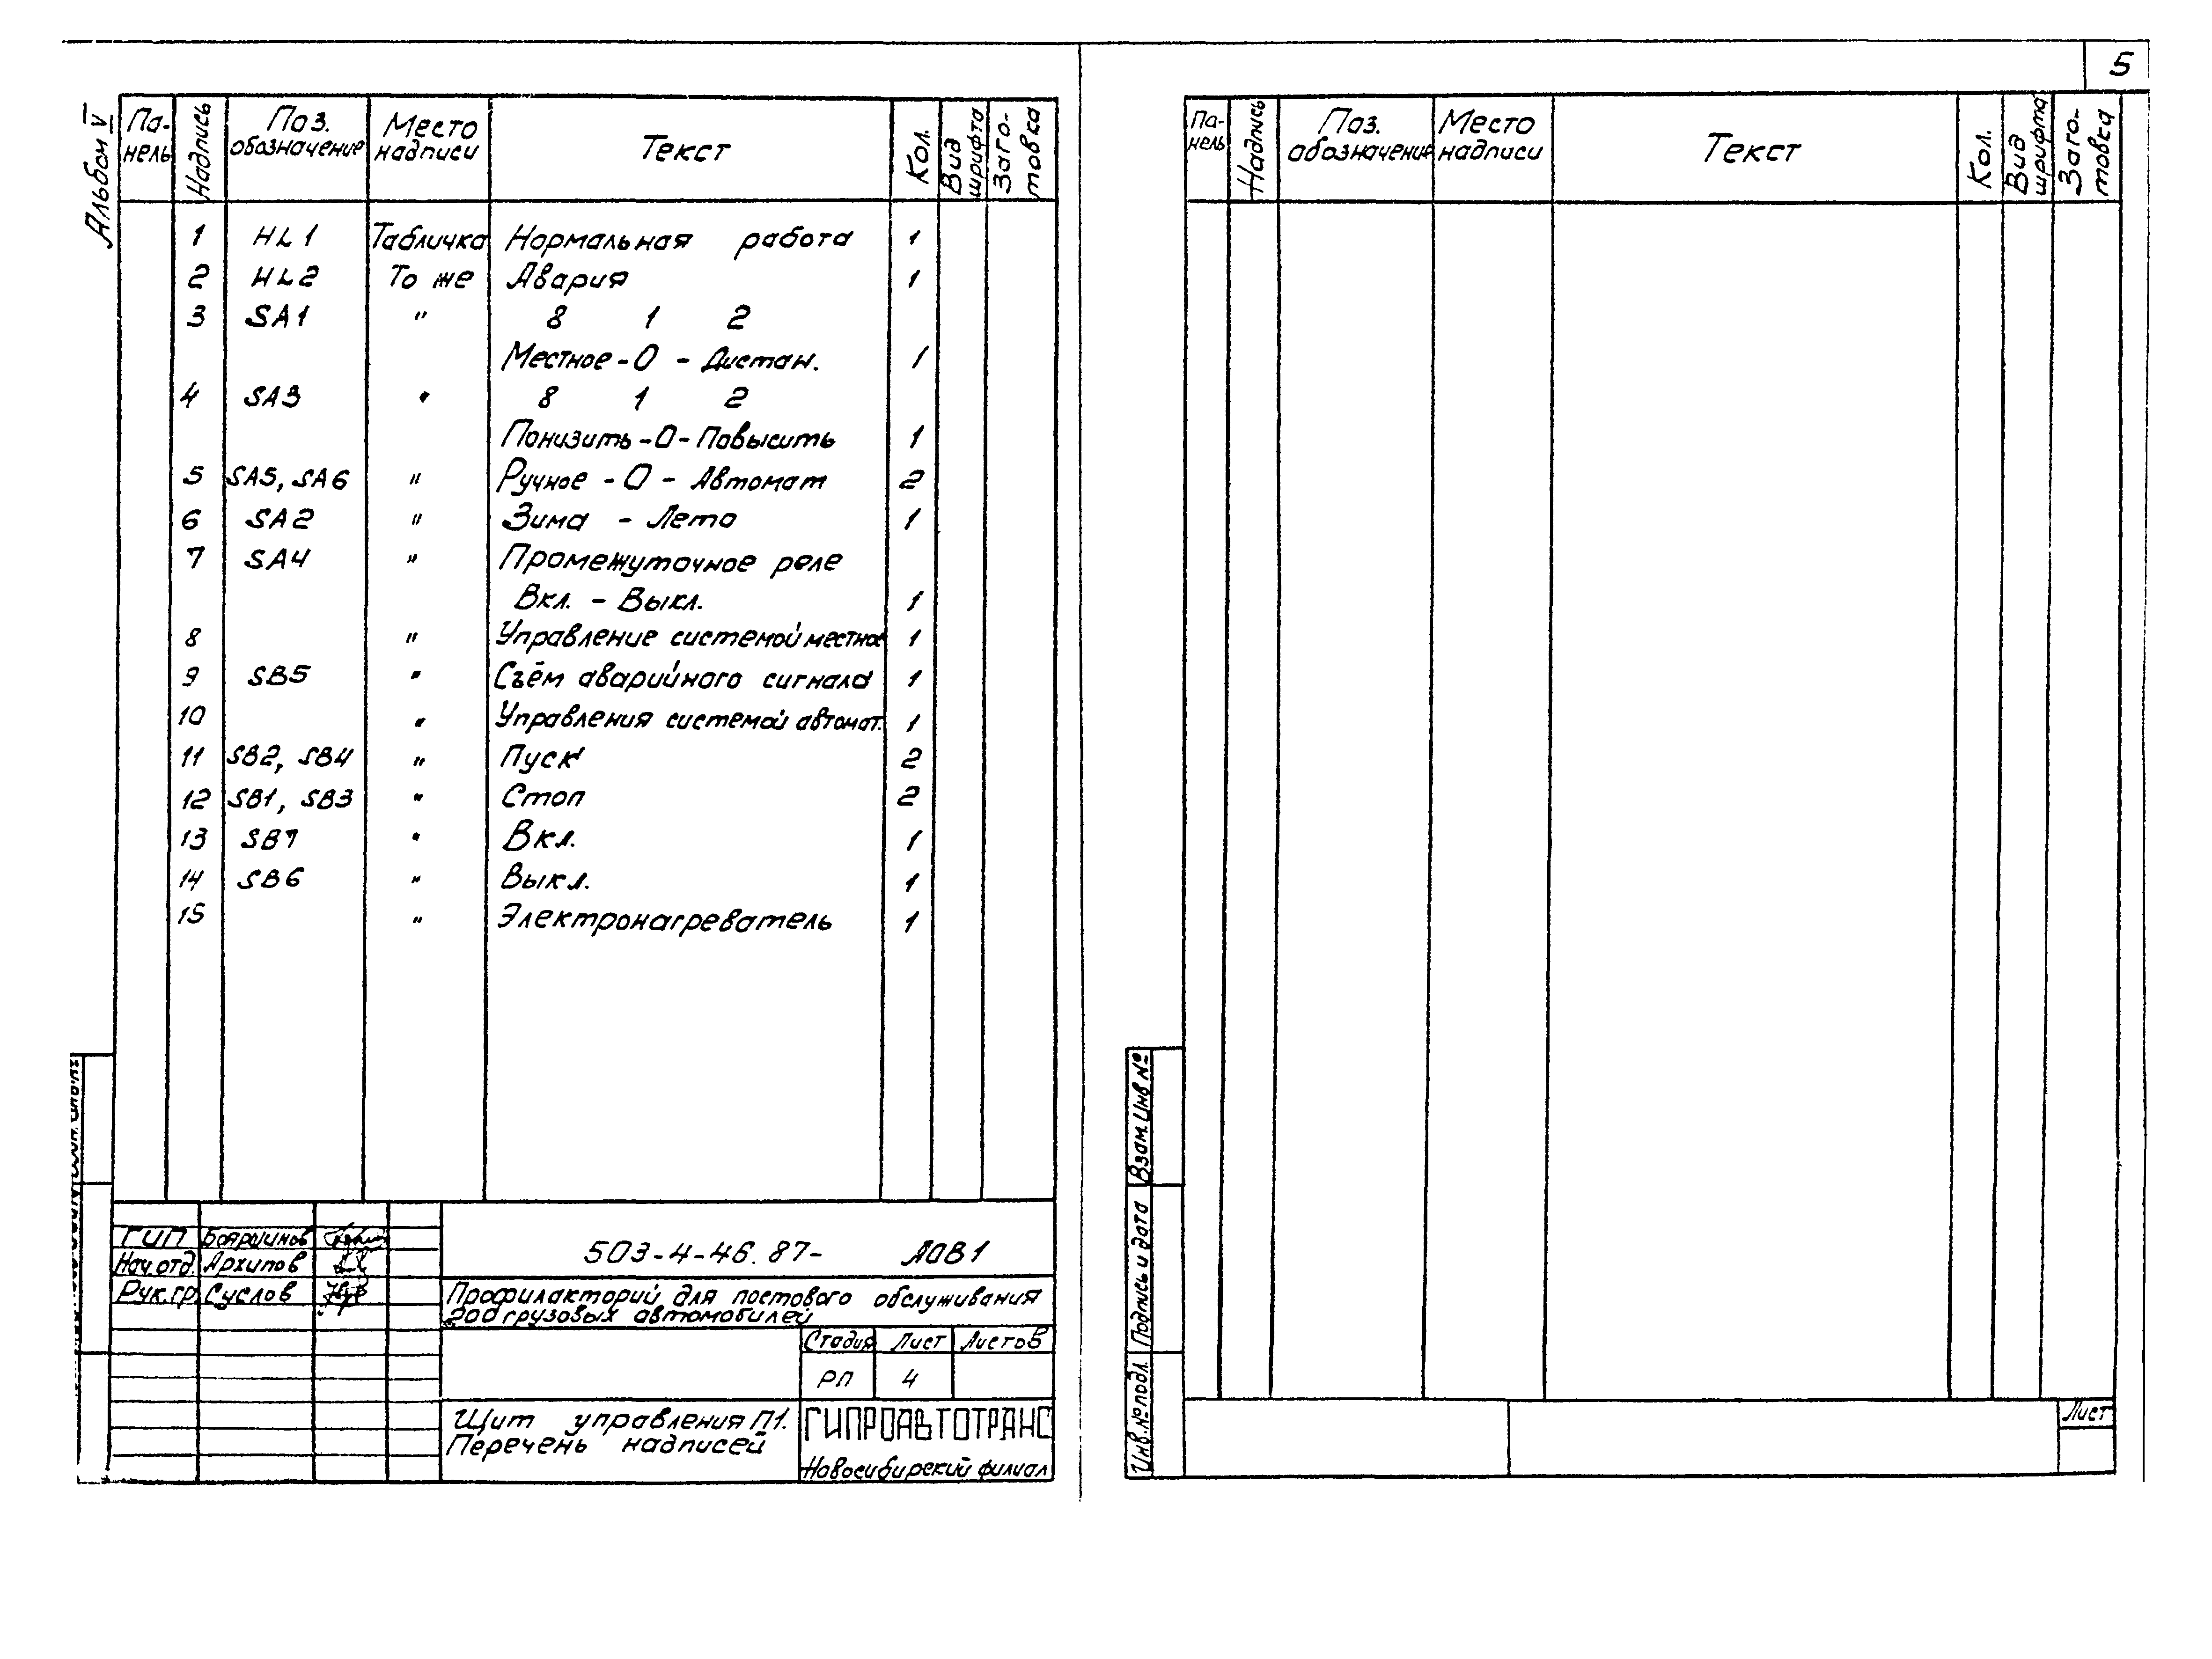 5
Альбом V
Па-нель Надпись Поз. обозначение Место надписи Текст Кол. Вид шрифта Заго-товка
1 HL1 Табличка Нормальная работа 1
2 HL2 То же Авария 1
3 SA1 " 8 1 2
Местное - 0 - Дистан. 1
4 SA3 " 8 1 2
Понизить - 0 - Повысить 1
5 SA5, SA6 " Ручное - 0 - Автомат 2
6 SA2 " Зима - Лето 1
7 SA4 " Промежуточное реле
Вкл. - Выкл. 1
8 " Управление системой местное 1
9 SB5 " Съём аварийного сигнала 1
10 " Управления системой автомат. 1
11 SB2, SB4 " Пуск 2
12 SB1, SB3 " Стоп 2
13 SB7 " Вкл. 1
14 SB6 " Выкл. 1
15 " Электронагреватель 1
ГИП Бояршинов
Нач.отд. Архипов
Рук.гр. Суслов
503-4-46.87- АОВ1
Профилакторий для постового обслуживания
200 грузовых автомобилей
Стадия Лист Листов
РП 4
Щит управления П1.
Перечень надписей
ГИПРОАВТОТРАНС
Новосибирский филиал
Па-нель Надпись Поз. обозначение Место надписи Текст Кол. Вид шрифта Заго-товка
Взам. Инв №
Подпись и дата
Инв.№ подл.
Лист